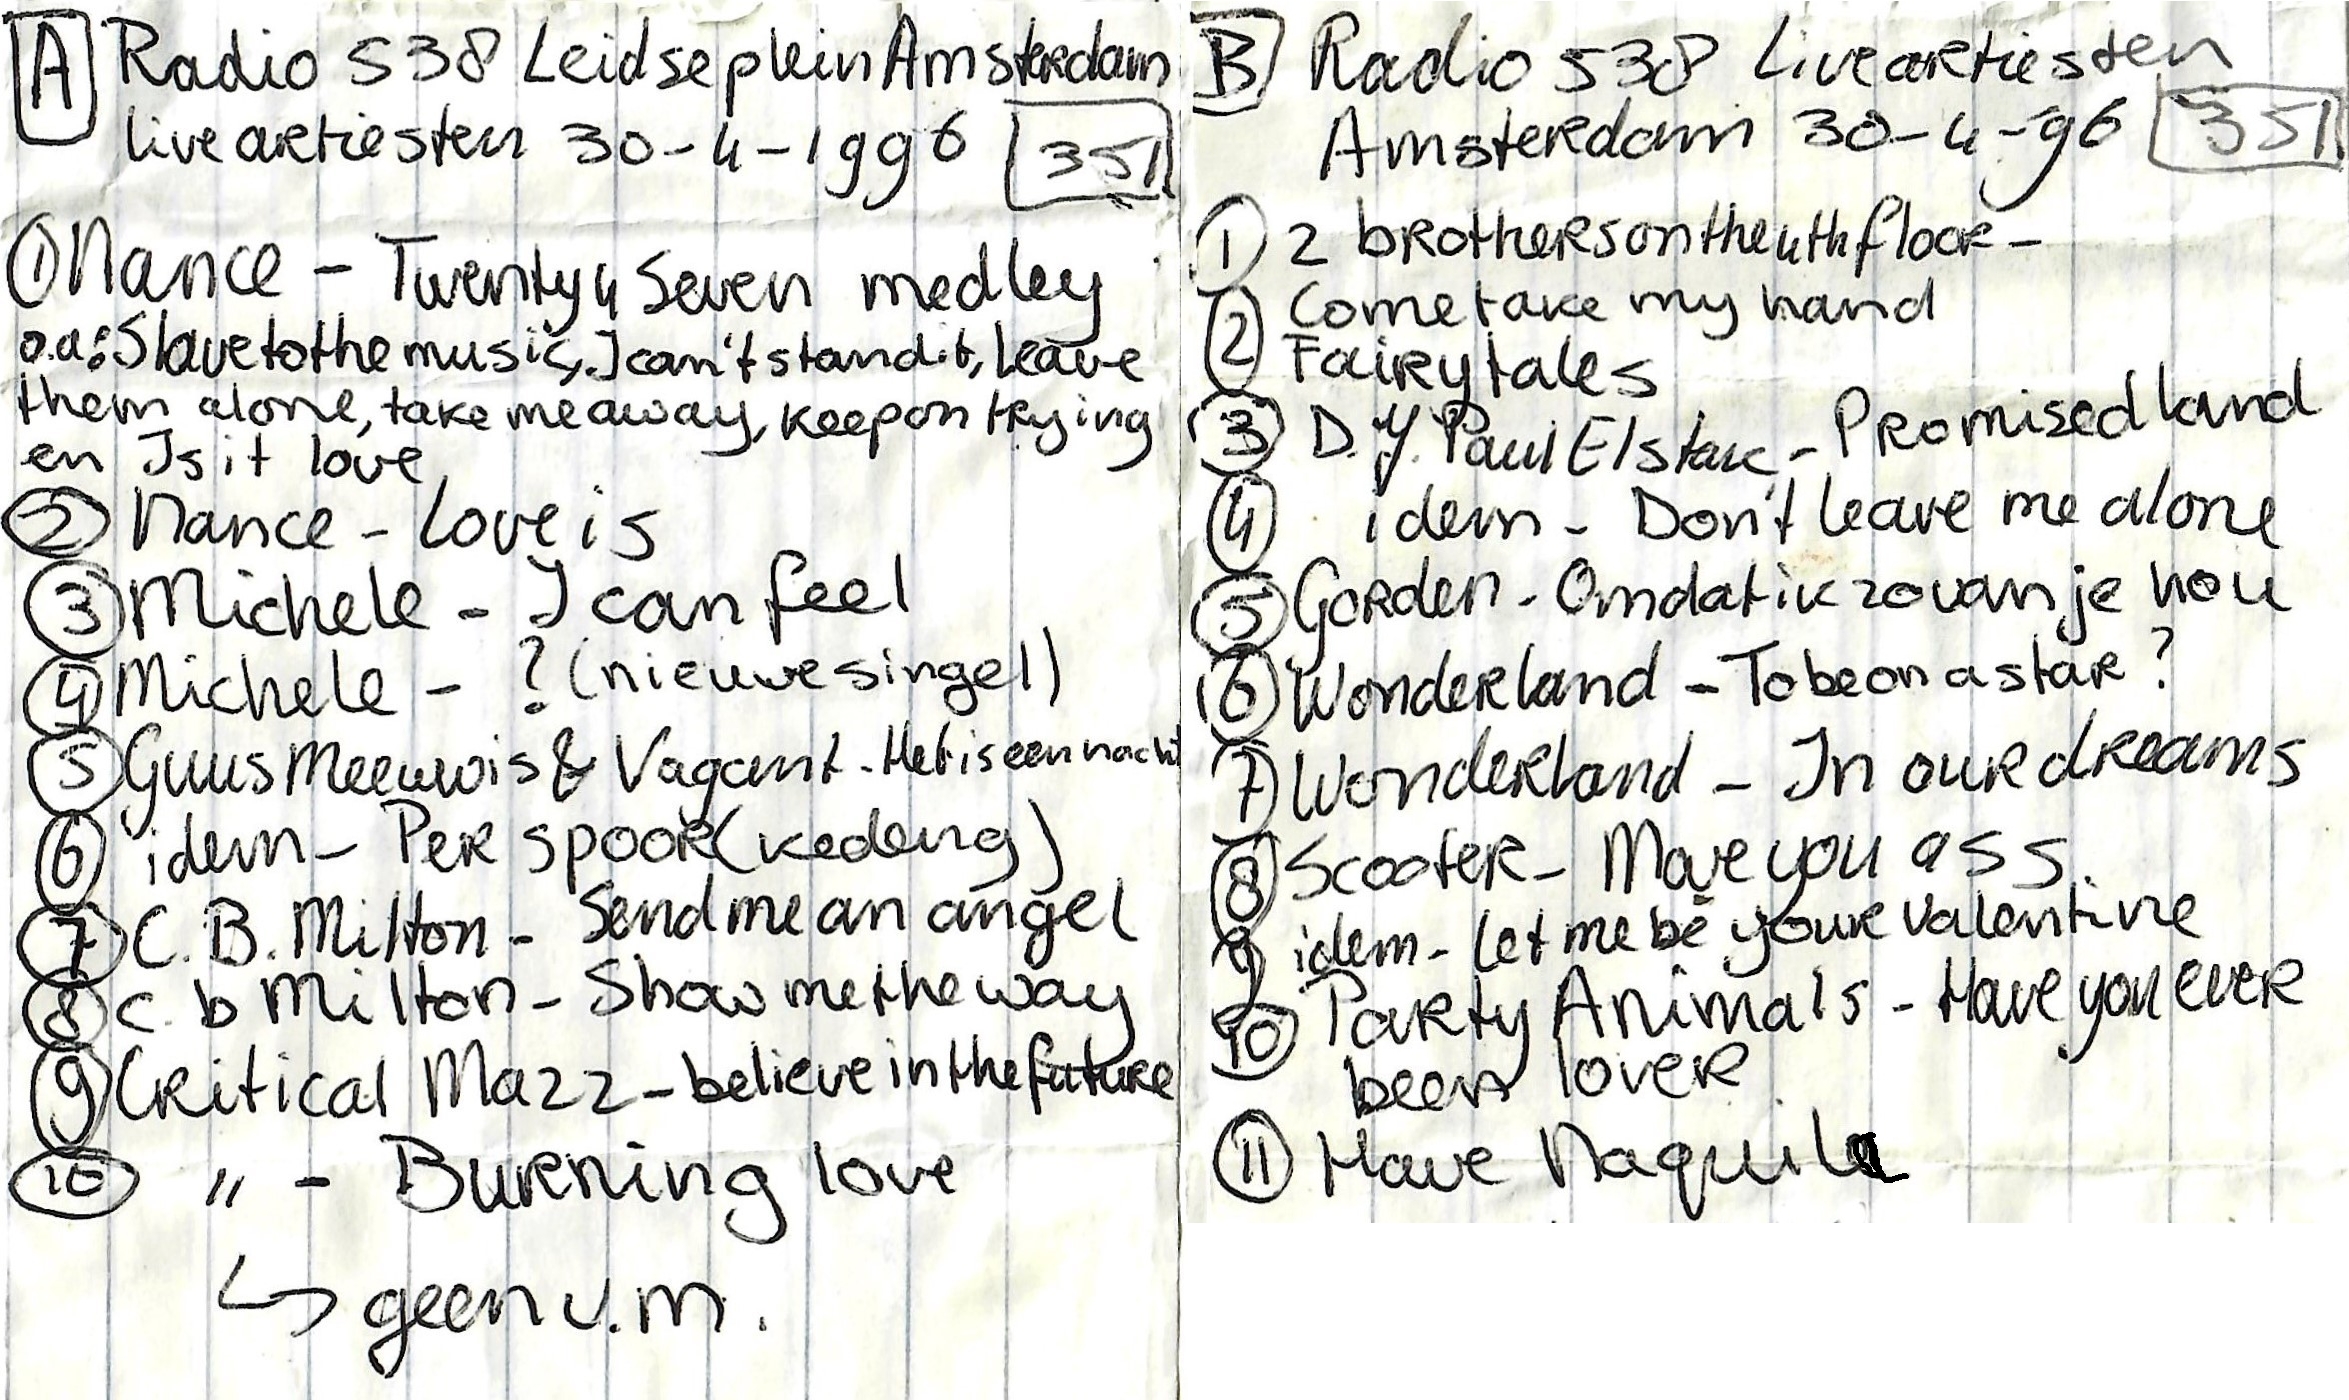 A Radio 538 Leidseplein Amsterdam
live artiesten 30-4-1996 351
1 Nance - Twenty 4 Seven medley
o.a: Slave to the music, I can't stand it, Leave
them alone, take me away, keep on trying
en Is it love
2 Nance - Love is
3 Michele - I can feel
4 Michele - ? (nieuwe singel)
5 Guus Meeuwis & Vagant - Het is een nacht
6 idem - Per spoor (kedeng)
7 C.B. Milton - Send me an angel
8 C. b Milton - Show me the way
9 Critical Mazz - believe in the future
10 " - Burning love
↳ geen v.m.
B Radio 538 Live artiesten
Amsterdam 30-4-96 351
1 2 brothers on the 4th floor -
Come take my hand
2 Fairytales
3 D.J. Paul Elstak - Promised land
4 idem - Don't leave me alone
5 Gorden - Omdat ik zo van je hou
6 Wonderland - To be on a star ?
7 Wonderland - In our dreams
8 Scooter - Move you ass
9 idem - Let me be your valentine
10 Party Animals - Have you ever
been lover
11 Have Naquila